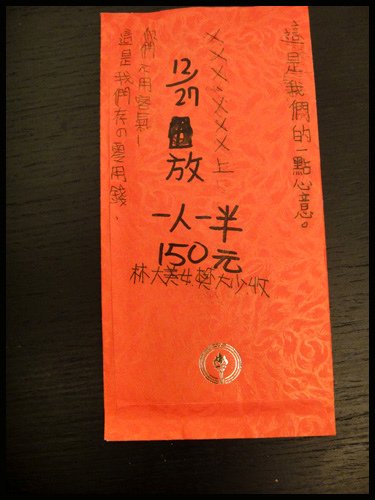 這是我們的一點心意。
××××××上
12/27
放
一人一半
150元
林大美女賴大少收
您們不用客氣!
這是我們存の零用錢、